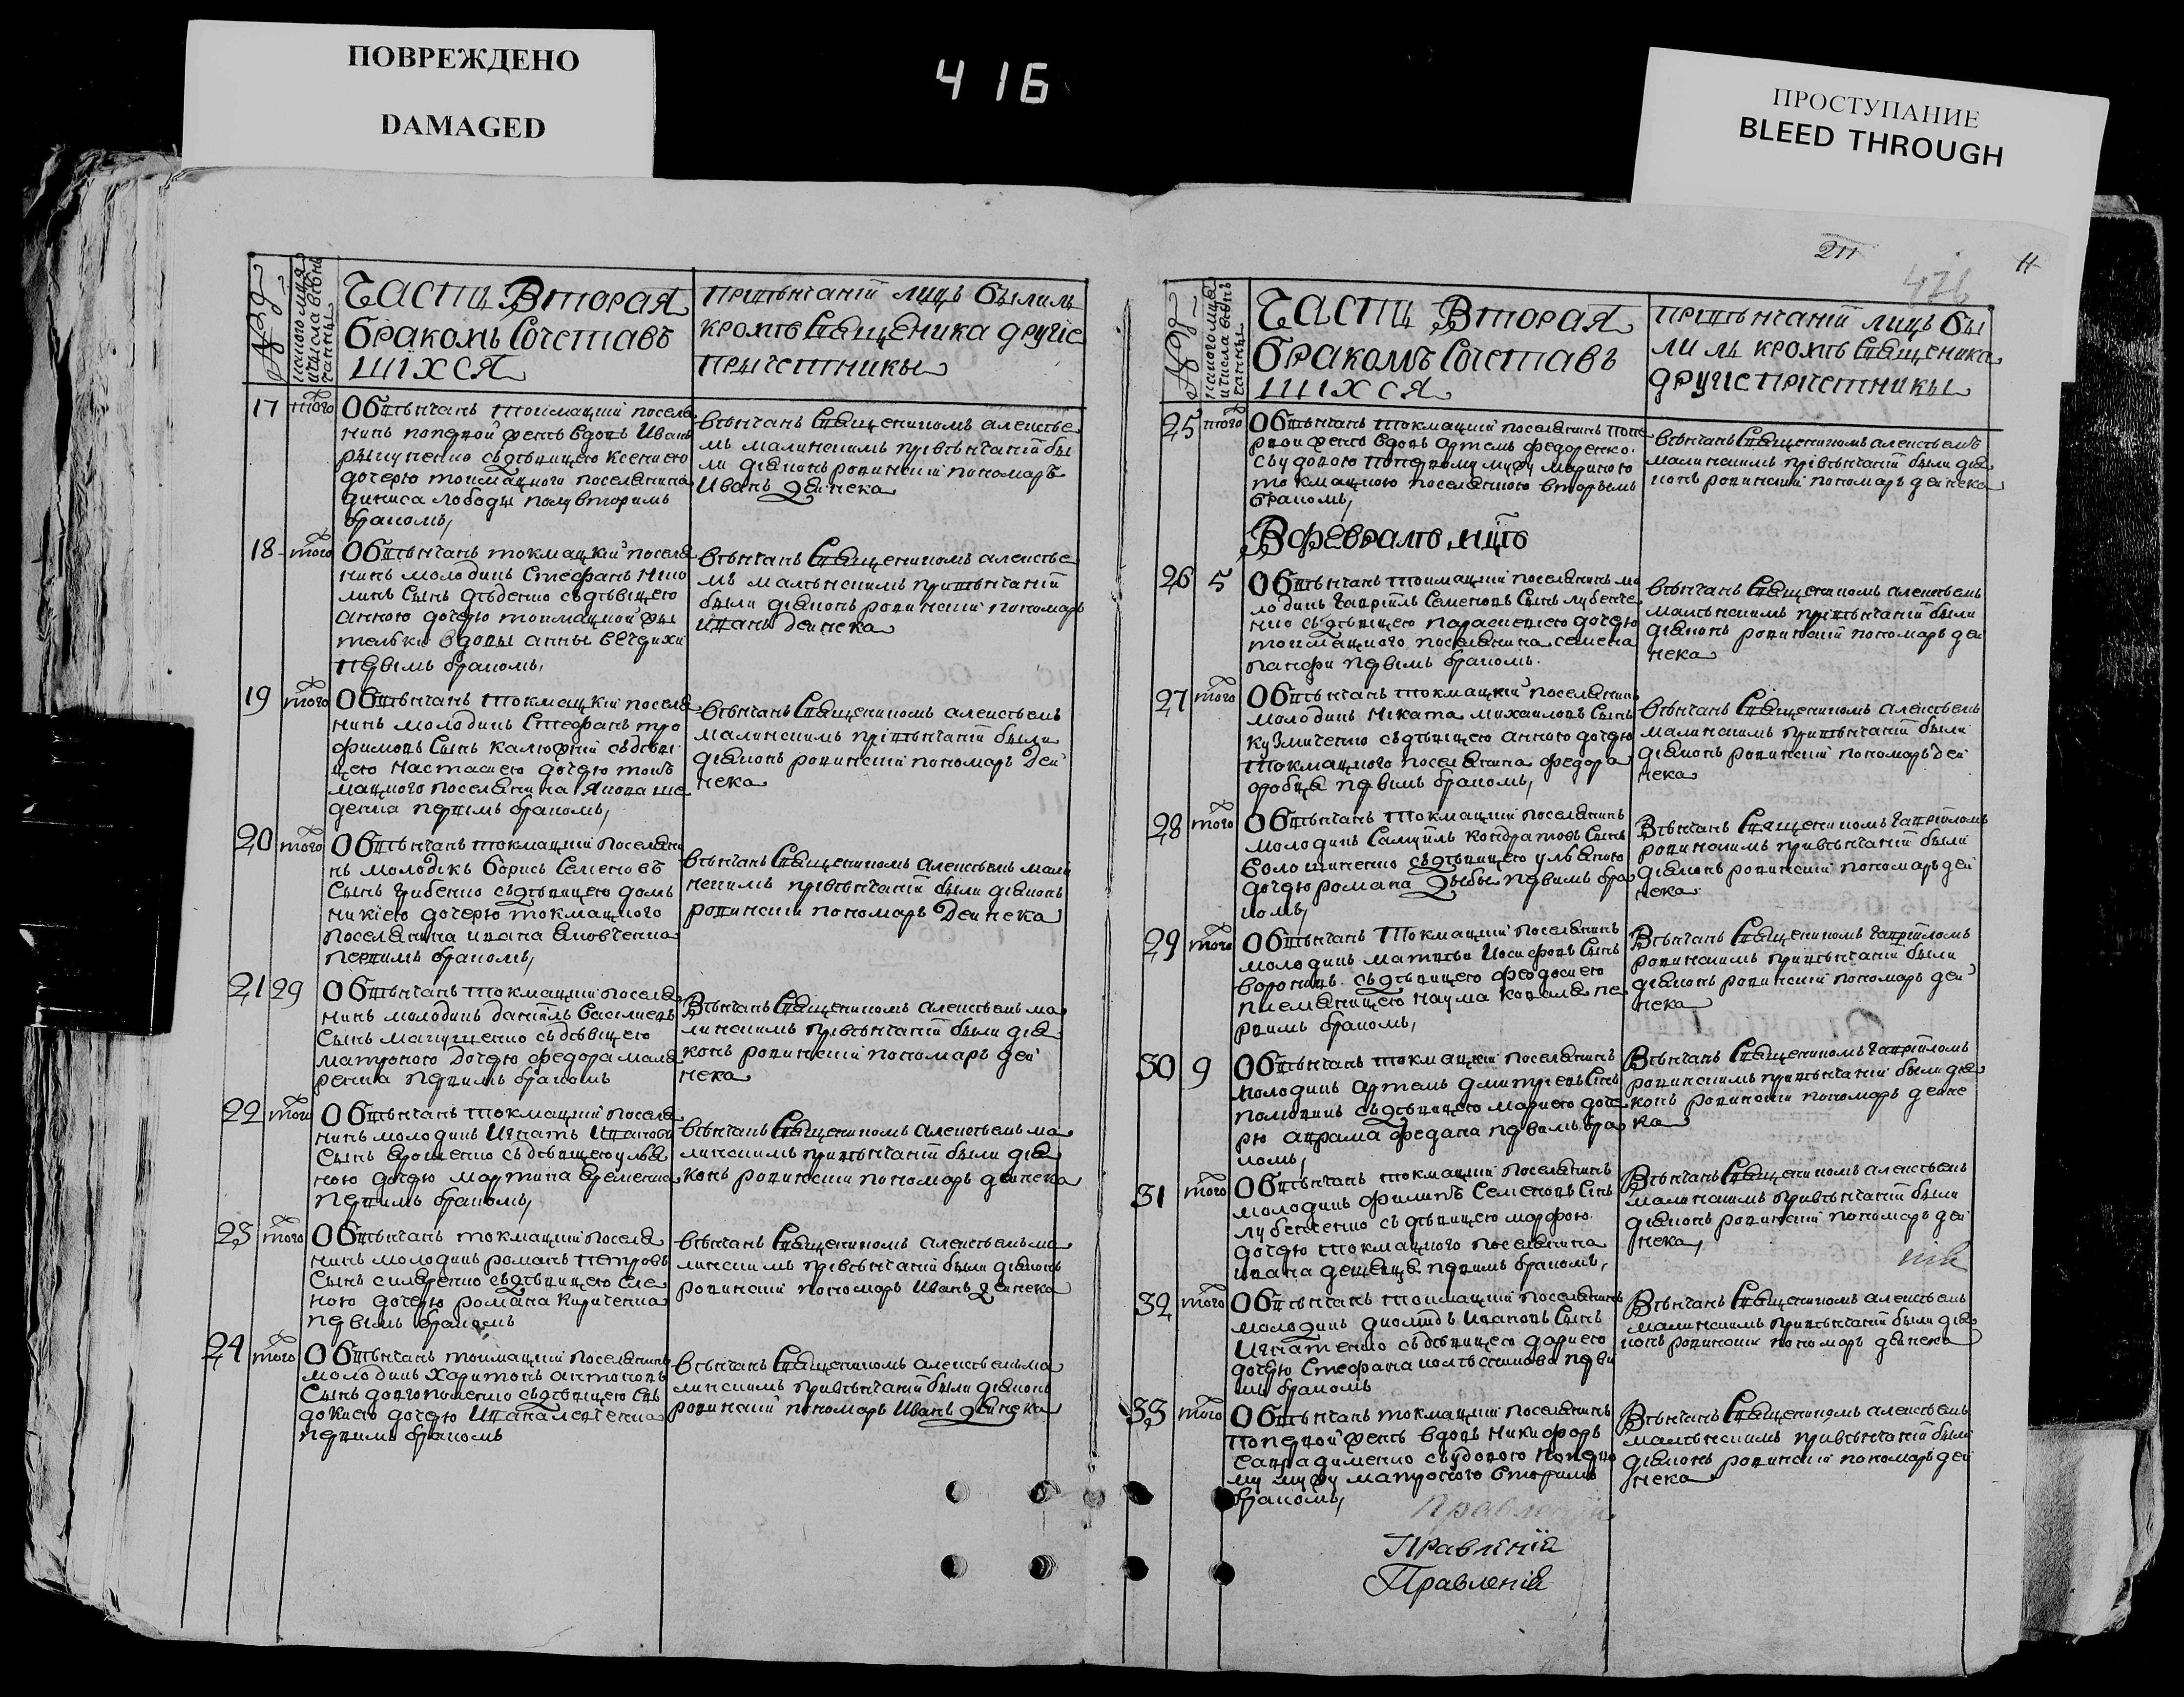 ПОВРЕЖДЕНО
DAMAGED
416
ПРОСТУПАНИЕ
BLEED THROUGH
211
426
11
Части Вторая
бракомъ Сочетавъ
шіхся
привѣнчаніи лицъ былиль
кромѣ Священика другіе
причетники
17 того
Обвѣнчанъ токмацкій поселя
нинъ попервой женѣ вдовъ Иванъ
съдѣвицею ксениею
дочерю токмацкого поселянина
диниса лободы полувторимъ
бракомъ,
вѣнчанъ Священикомъ алексѣе
мъ малинскимъ прівѣнчаніи бы
ли діяконъ ровинскій пономаръ
Иванъ Дейнека
18 того
Обвѣнчанъ токмацкій поселя
нинъ молодикъ Стефанъ Нико
линъ Сынъ дѣденко съдѣвіцею
анною дочерю токмацкой жи
телки вдовы анны
первымъ бракомъ,
вѣнчанъ Священикомъ алексѣе
мъ малѣнскимъ привѣнчаній
были діяконъ ровинскій пономаръ
иванъ дейнека
19 того
Обвѣнчанъ токмацкій поселя
нинъ молодикъ Стефанъ тро
фимовъ Сынъ калюжній съдѣви
цею настасиею дочерю ток
мацкого поселянина Якова ше
денка первимъ бракомъ,
вѣнчанъ Священикомъ алексѣемъ
малинскимъ прівѣнчаніи были
діяконъ ровинскій пономаръ Дей
нека
20 того
Обвѣнчанъ токмацкій поселяни
нъ молодікъ борисъ Семеновъ
Сынъ грибенко съдѣвицею дом
никіею дочерю токмацкого
поселянина ивана яковченка
первимъ бракомъ,
вѣнчанъ Священикомъ алексѣемъ мали
нскимъ прівѣнчаніи были діяконъ
ровинскій пономаръ Дейнека
21 29
Обвѣнчанъ токмацкій поселя
нинъ молодикъ даніилъ василиевъ
Сынъ съдѣвіцею
матроною дочерю федора мала
ренка первимъ бракомъ
Вѣнчанъ Священикомъ алексѣемъ ма
линскимъ прівѣнчаніи были дія
конъ ровинскій пономаръ дей
нека
22 того
Обвѣнчанъ токмацкій поселя
нинъ молодикъ Игнатъ Ивановъ
Сынъ ярошенко съдѣвицею улья
ною дочерю мартина яременка
первимъ бракомъ,
вѣнчанъ Священикомъ алексѣемъ ма
линскимъ привѣнчаніи были дія
конъ ровинскій пономаръ дейнека
23 того
Обвѣнчанъ токмацкій поселя
нинъ молодикъ романъ петровъ
Сынъ скляренко съдѣвицею еле
ною дочерю романа кириченка
первымъ бракомъ
вѣнчанъ Священикомъ алексѣемъ ма
линскимъ прівѣнчаніи были діяконъ
ровинскій пономаръ Иванъ дейнека
24 того
Обвѣнчанъ токмацкій поселянинъ
молодикъ харитонъ антоновъ
Сынъ долгополенко съдѣвицею ев
докиею дочерю Ивана левченка
первимъ бракомъ
вѣнчанъ Священикомъ алексѣемъ ма
линскимъ привѣнчаніи были діяконъ
ровинскій пономаръ Иванъ дейнека
Части Вторая
бракомъ Сочетавъ
шіхся
привѣнчаніи лицъ бы
ли ль кромѣ Священика
другіе причетники
25 того
Обвѣнчанъ токмацкій поселянинъ попе
рвои женѣ вдовъ артемъ федоренко
съудовою попервому мужу мариною
токмацкою поселянкою вторымъ
бракомъ,
вѣнчанъ Священикомъ алексѣемъ
малинскимъ прівѣнчаніи были дія
конъ ровинскій пономаръ дейнека
В февралѣ мцѣ
26 5
Обвѣнчанъ токмацкій поселянинъ мо
лодикъ гавріилъ Семеновъ Сынъ лубенче
нко съдѣвіцею параскевіею дочерю
токмацкого поселянина семена
первімъ бракомъ.
вѣнчанъ Священикомъ алексѣемъ
малѣнскимъ прівѣнчаніи были
діяконъ ровинскій пономаръ дей
нека
27 того
Обвѣнчанъ токмацкій поселянинъ
молодикъ Нікита михаиловъ Сынъ
кузмиченко съдѣвіцею анною дочерю
токмацкого поселянина федора
оробця первимъ бракомъ,
вѣнчанъ Священикомъ алексѣемъ
малинскимъ привѣнчаніи были
діяконъ ровинскій пономаръ дей
нека
28 того
Обвѣнчанъ токмацкій поселянинъ
молодикъ Самуилъ кондратовъ Сынъ
волошиненко съдѣвицею ульяною
дочерю романа Дыбы первимъ бра
комъ,
Вѣнчанъ Священикомъ гавріиломъ
ровинскимъ привѣнчаніи были
діяконъ ровинскій пономаръ дей
нека
29 того
Обвѣнчанъ Токмацкій поселянинъ
молодикъ матвѣй Иосифовъ Сынъ
воронинъ съдѣвицею феодосиею
племяницею наума коваля пе
рвимъ бракомъ,
Вѣнчанъ Священикомъ гавріиломъ
ровинскимъ привѣнчаніи были
діяконъ ровинскій пономаръ дей
нека
30 9
Обвѣнчанъ токмацкій поселянинъ
молодикъ артемъ дмитріевъ Снъ
съдѣвицею мариею доче
рю аврама федана первимъ бра
комъ,
Вѣнчанъ Священикомъ гавріиломъ
ровинскимъ привѣнчаніи были дія
конъ ровинскій пономаръ дейне
ка
31 того
Обвѣнчанъ токмацкій поселянинъ
молодикъ филипъ Семеновъ Снъ
лубенченко съдѣвицею марфою
дочерю токмацкого поселянина
ивана первимъ бракомъ,
Вѣнчанъ Священикомъ алексѣемъ
малинскимъ привѣнчаніи были
діяконъ ровинскій пономаръ дей
нека,
32 того
Обвѣнчанъ токмацкій поселянинъ
молодикъ диомидъ Ивановъ Сынъ
Игнатенко съдѣвицею дариею
дочерю Стефана колѣсникова перви
мъ бракомъ
Вѣнчанъ Священикомъ алексѣемъ
малинскимъ привѣнчаніи были дія
конъ ровинскій пономаръ дейнека
33 того
Обвѣнчанъ токмацкій поселянинъ
попервой женѣ вдовъ никифоръ
съудовою поперво
му мужу матроною вторимъ
бракомъ,
Вѣнчанъ Священикомъ алексѣемъ
малѣнскимъ привѣнчаніи были
діяконъ ровинскій пономаръ дей
нека
Правленія
Правленія